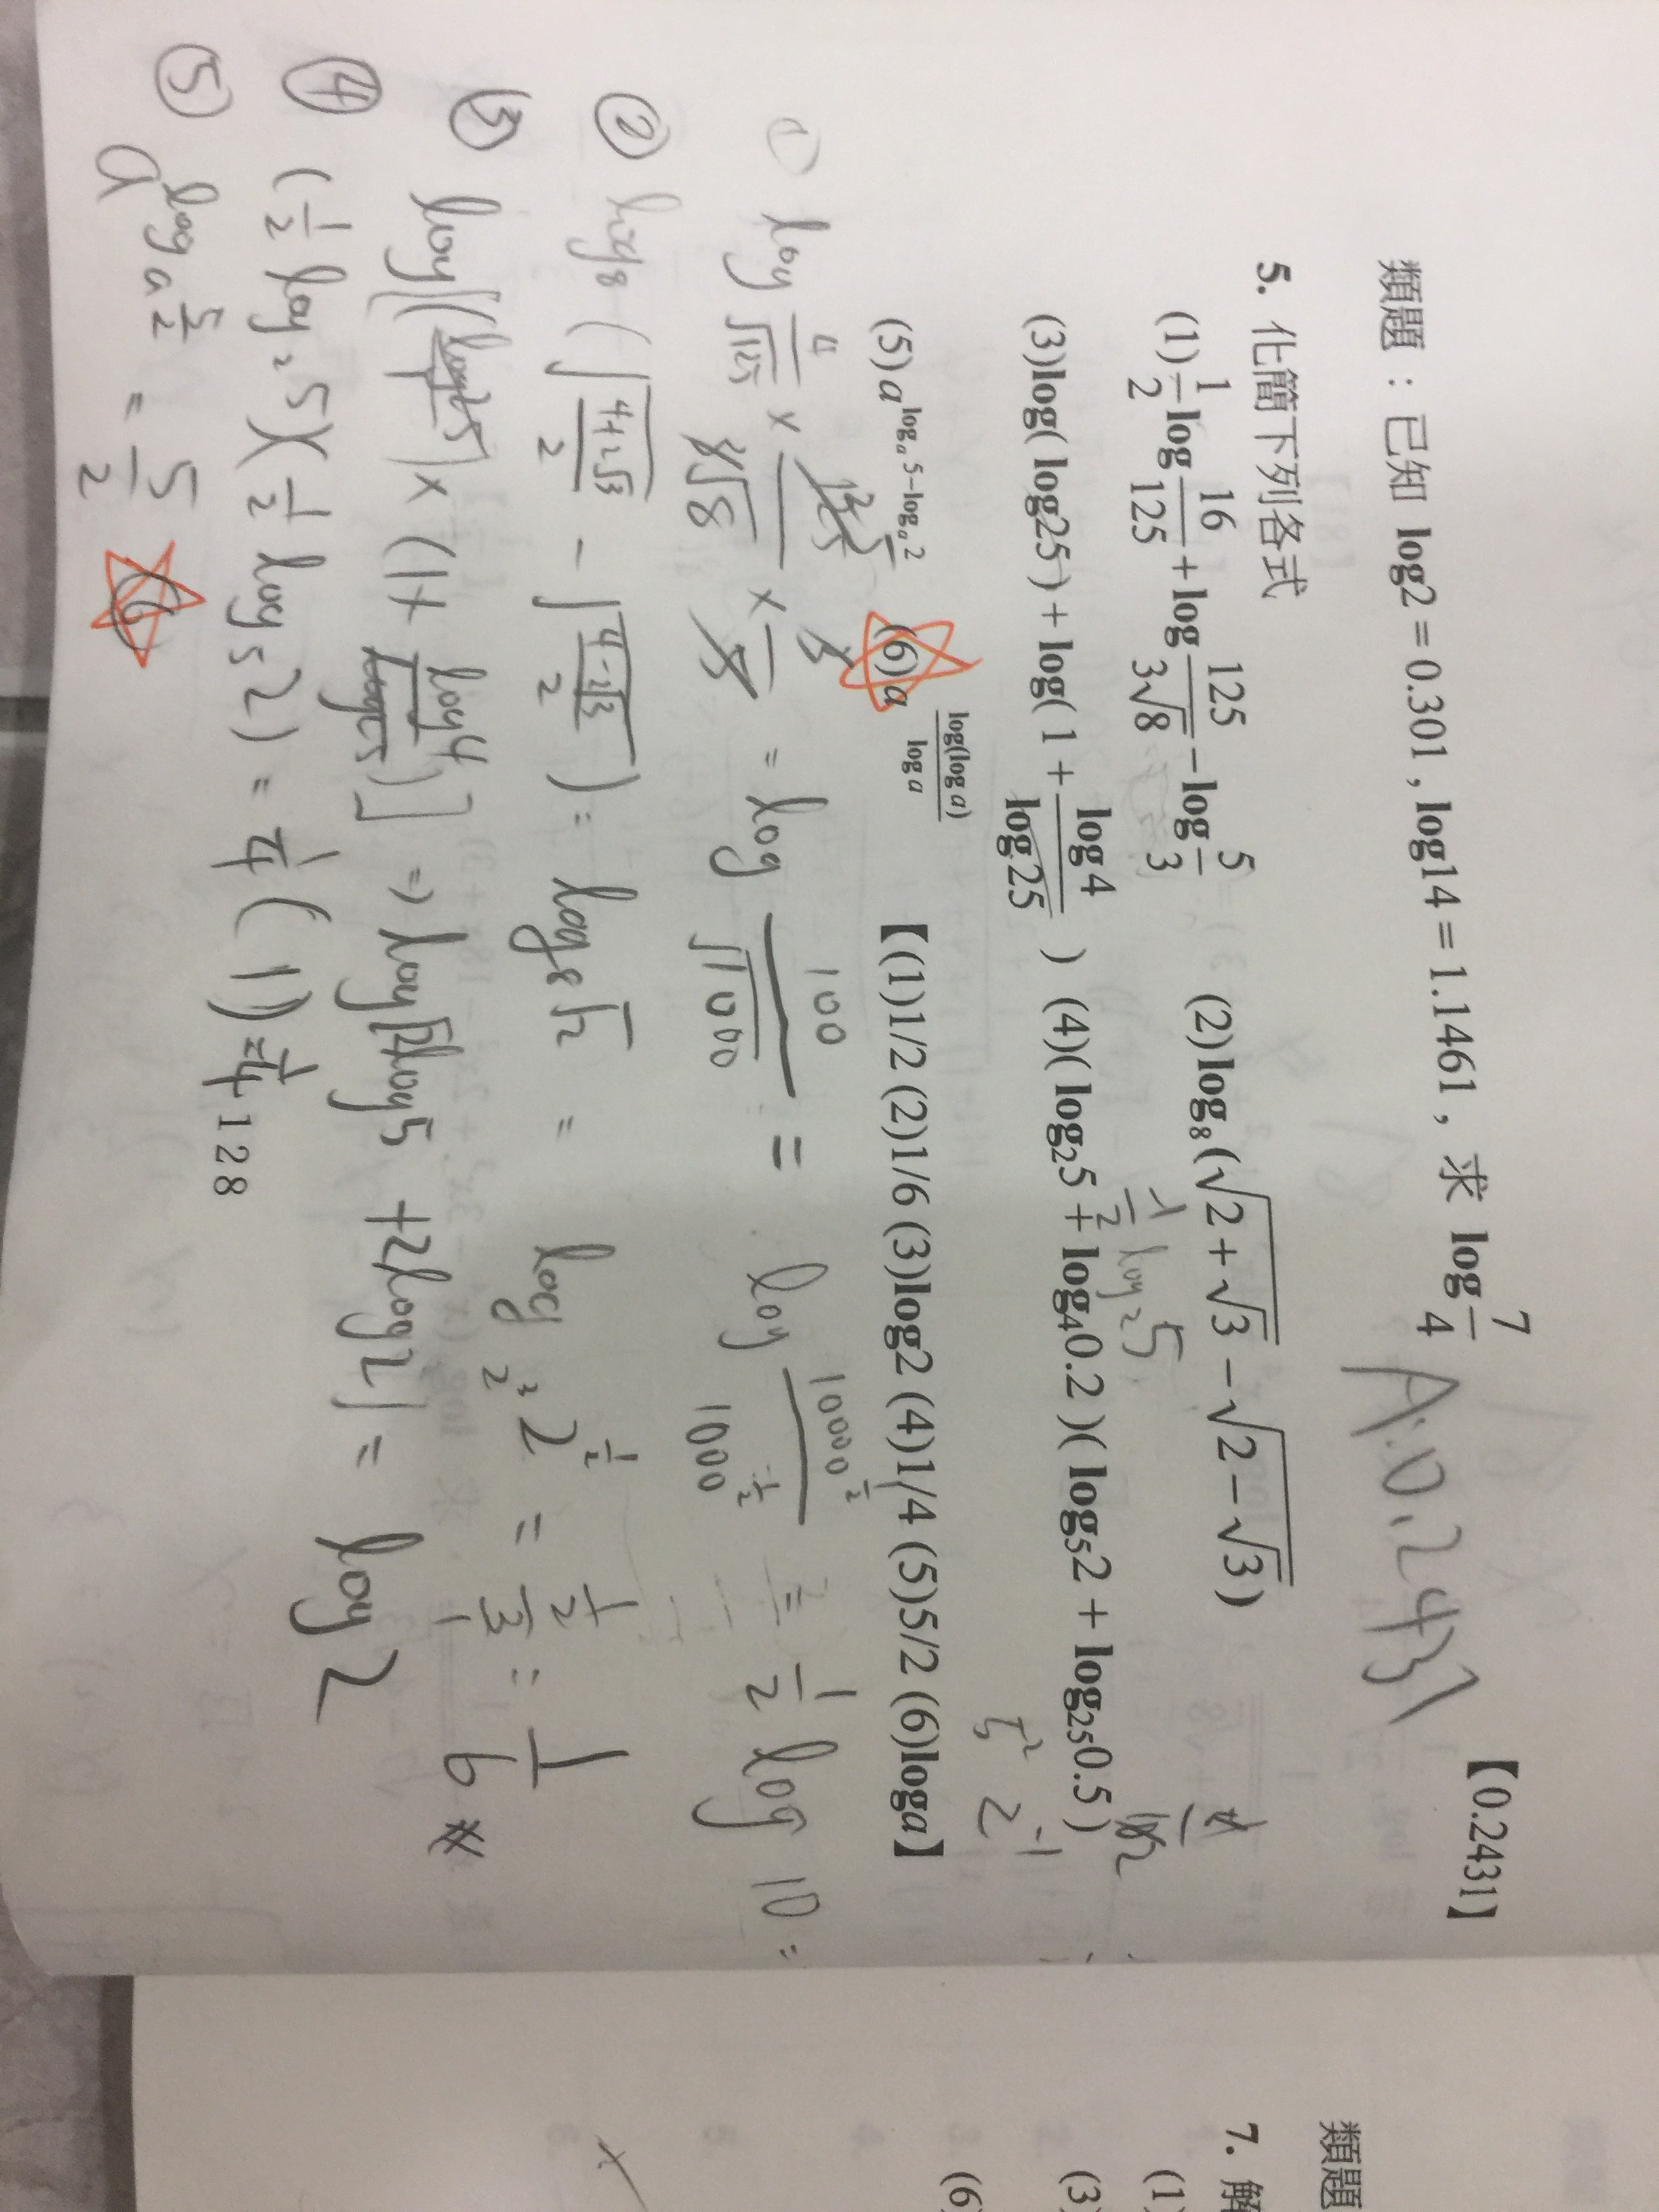 類題：已知 log2 = 0.301 , log14 = 1.1461 , 求 log 7/4 【0.2431】
A:0.2431
5. 化簡下列各式
(1) 1/2 log 16/125 + log 125/3√8 − log 5/3 (2) log₈(√(2+√3) − √(2−√3))
(3) log( log25 ) + log( 1 + log4/log25 ) (4)( log₂5 + log₄0.2 )( log₅2 + log₂₅0.5 )
(5) a^(logₐ5−logₐ2) (6) a^(log(log a)/log a) 【(1)1/2 (2)1/6 (3)log2 (4)1/4 (5)5/2 (6)loga】
① log 4/√125 × = log 100/√1000 = log = 1/2 log 10 =
② log₈ ( √((4+2√3)/2) − √((4−2√3)/2) ) = log₈ √2 = log₂³ 2^(1/2) = 1/6
③ log[(log25) × (1+ log4/log25)] ⇒ log[2log5 +2log2] = log 2
④ (1/2 log₂5)(1/2 log₅2) = 1/4 (1) = 1/4
128
⑤ a^(logₐ 5/2) = 5/2
⑥
類題
7. 解
(1)
(3)
(6)